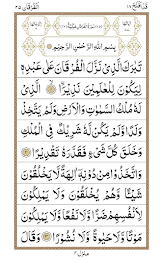 قد افلح ١٨
الفرقان ٢٥
بِسْمِ اللّٰهِ الرَّحْمٰنِ الرَّحِيْمِ
تَبٰرَكَ الَّذِیْ نَزَّلَ الْفُرْقَانَ عَلٰی عَبْدِهٖ
لِیَكُوْنَ لِلْعٰلَمِیْنَ نَذِیْرَا ۙ الَّذِیْ
لَهٗ مُلْكُ السَّمٰوٰتِ وَالْاَرْضِ وَلَمْ یَتَّخِذْ
وَلَدًا وَّلَمْ یَكُنْ لَّهٗ شَرِیْكٌ فِی الْمُلْكِ
وَخَلَقَ كُلَّ شَیْءٍ فَقَدَّرَهٗ تَقْدِیْرًا
وَاتَّخَذُوْا مِنْ دُوْنِهٖۤ اٰلِهَةً لَّا یَخْلُقُوْنَ
شَیْـًٔا وَّهُمْ یُخْلَقُوْنَ وَلَا یَمْلِكُوْنَ
لِاَنْفُسِهِمْ ضَرًّا وَّلَا نَفْعًا وَّلَا یَمْلِكُوْنَ
مَوْتًا وَّلَا حَیٰوةً وَّلَا نُشُوْرًا وَقَالَ